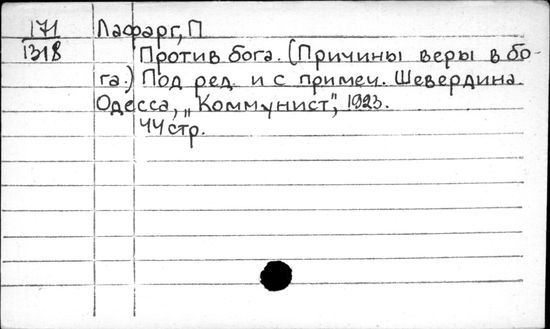 171
1318
Лафарг, П
Против бога. (Причины веры в бо-
га.) Под ред. и с примеч. Шевердина.
Одесса, „Коммунист", 1923.
44 стр.